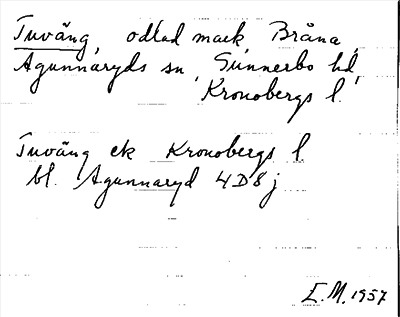 Tuväng, odlad mark Bråna,
Agunnaryds sn, Sunnerbo hd,
Kronobergs l.
Tuväng ek Kronobergs l.
bl. Agunnaryd 4D8j
E.M. 1957